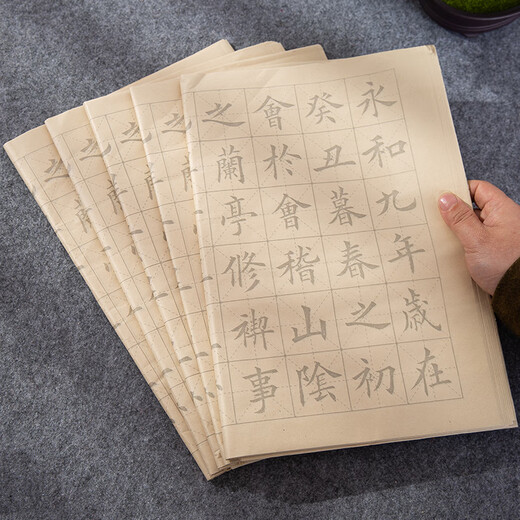 永和九年歲在
癸丑暮春之初
會於會稽山陰
之蘭亭修禊事